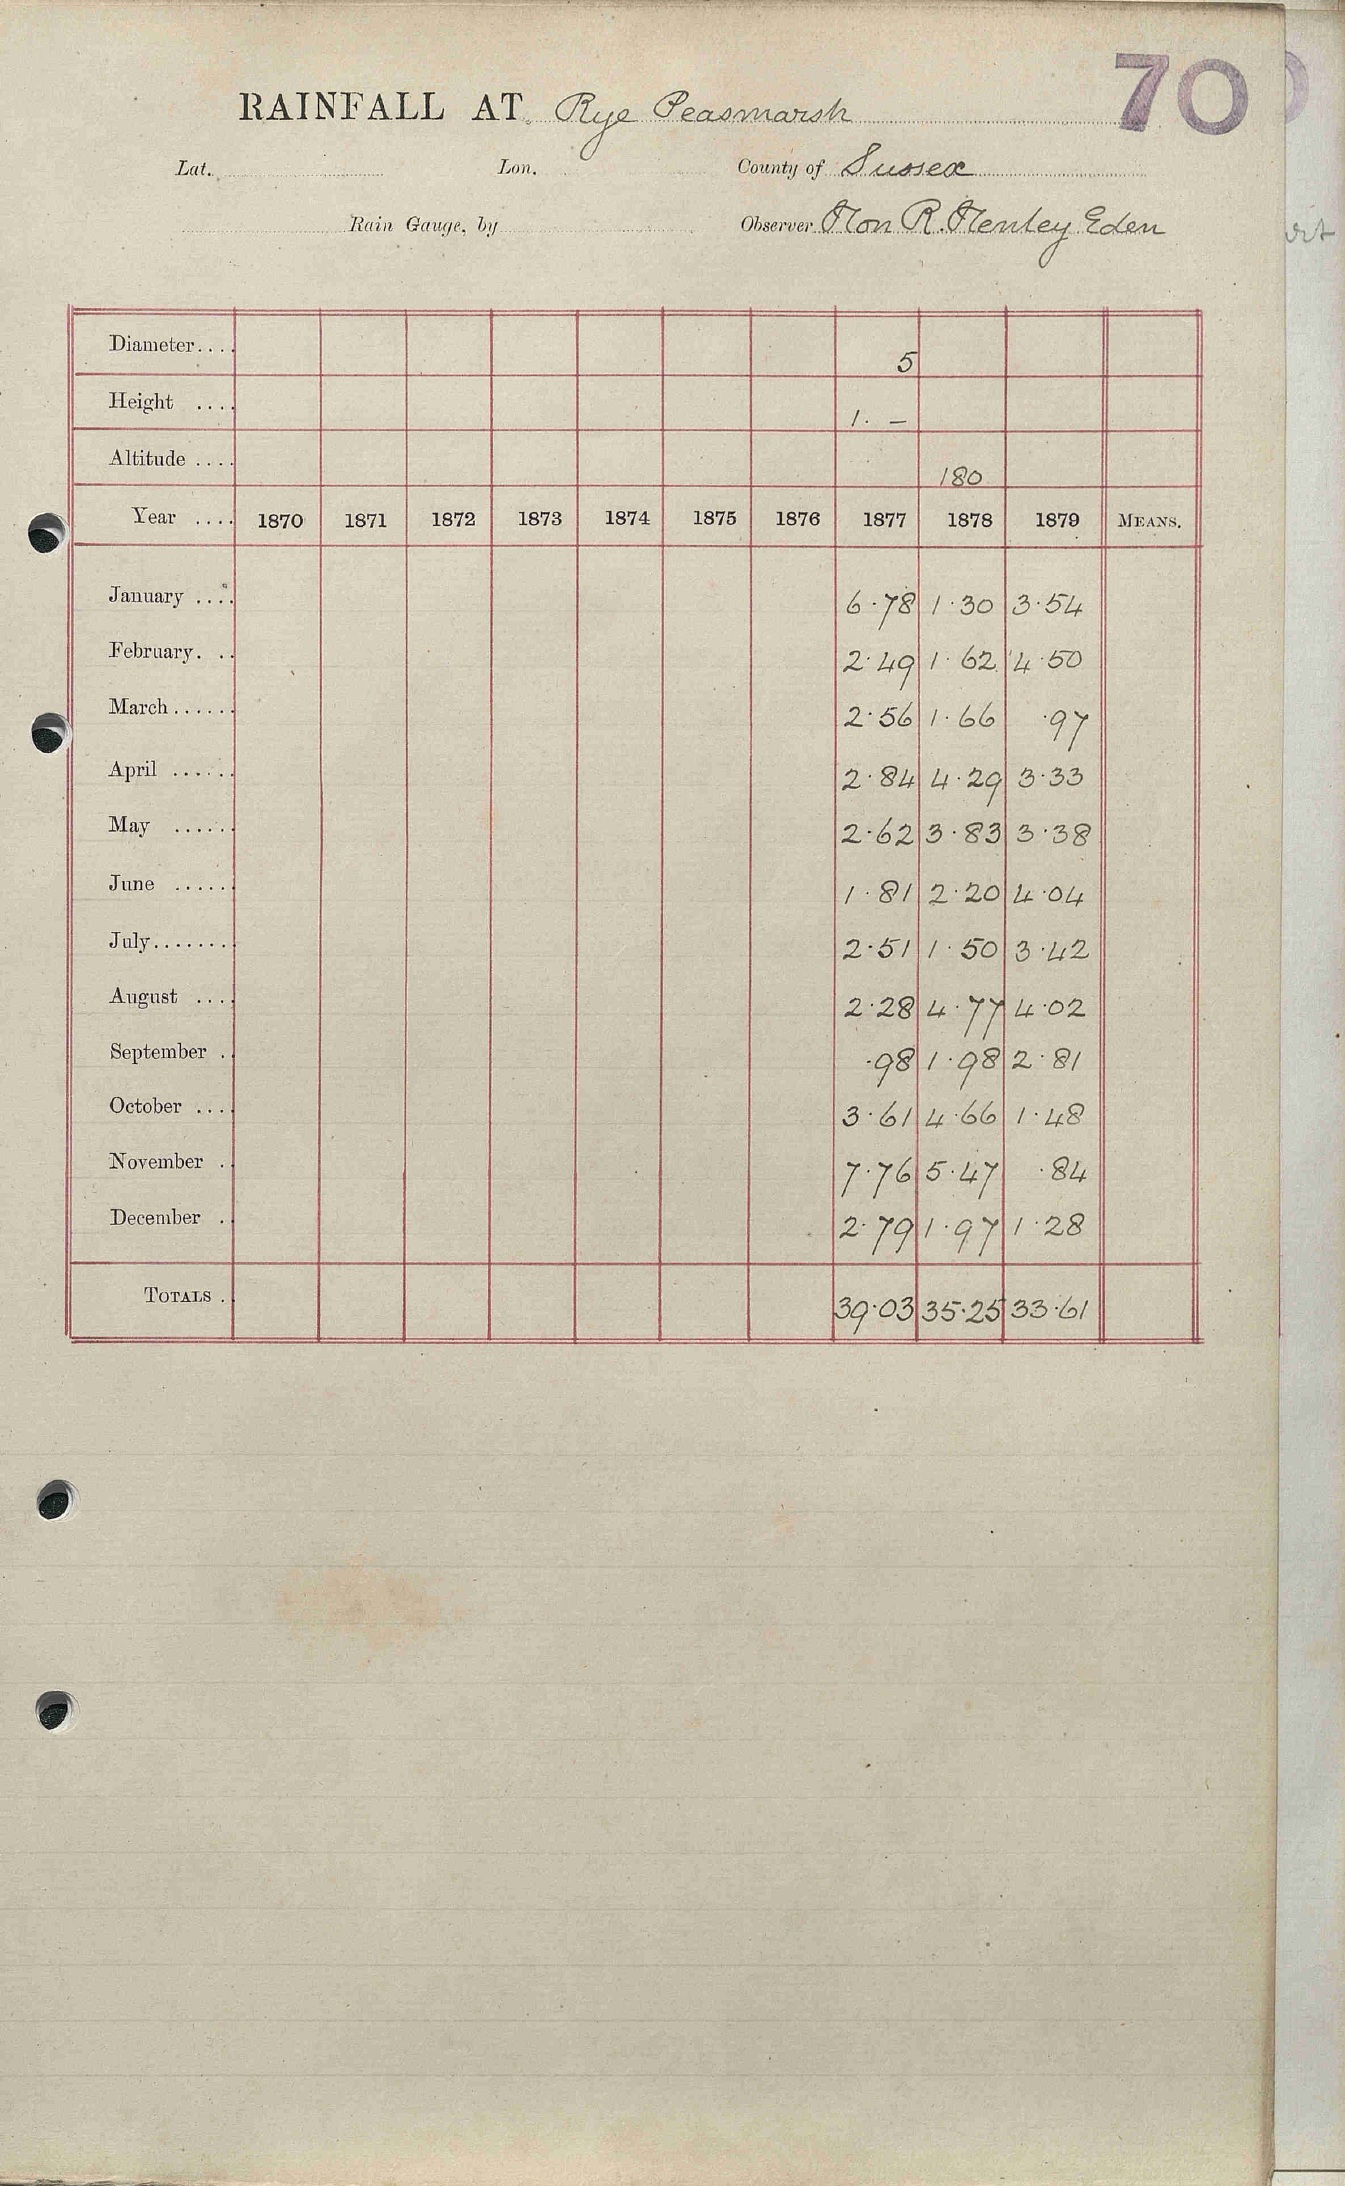 70
RAINFALL AT Rye Peasmarsh
Lat. Lon. County of Sussex
Rain Gauge, by Observer Hon R. Henley Eden
Diameter.... 5
Height .... 1. –
Altitude .... 180
Year .... 1870 1871 1872 1873 1874 1875 1876 1877 1878 1879 MEANS.
January .... 6.78 1.30 3.54
February. .. 2.49 1.62 4.50
March...... 2.56 1.66 .97
April ...... 2.84 4.29 3.33
May ...... 2.62 3.83 3.38
June ...... 1.81 2.20 4.04
July....... 2.51 1.50 3.42
August .... 2.28 4.77 4.02
September . .98 1.98 2.81
October .... 3.61 4.66 1.48
November . 7.76 5.47 .84
December . 2.79 1.97 1.28
TOTALS . 39.03 35.25 33.61